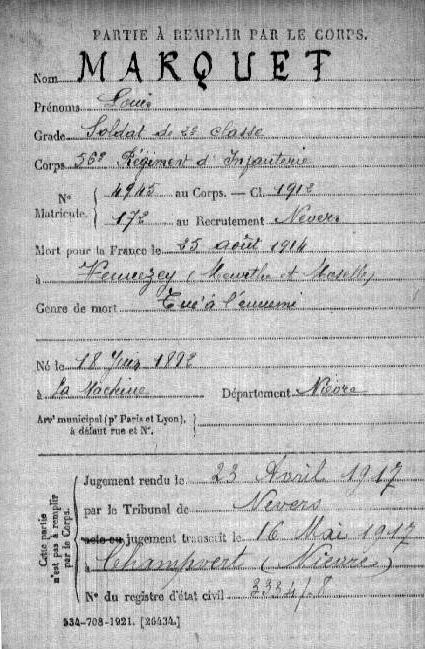 PARTIE À REMPLIR PAR LE CORPS.
Nom MARQUET
Prénoms Louis
Grade Soldat de 2e classe
Corps 56e Régiment d'Infanterie
N° Matricule. { 4945 au Corps. — Cl. 1912
172 au Recrutement Nevers
Mort pour la France le 25 août 1914
à (Meurthe et Moselle)
Genre de mort Tué à l'ennemi
Né le 18 1892
à La Machine Département Nièvre
Arrt municipal (pr Paris et Lyon), à défaut rue et N°. }
Cette partie n'est pas à remplir par le Corps.
Jugement rendu le 23 Avril 1917
par le Tribunal de Nevers
acte ou jugement transcrit le 16 Mai 1917
à Champvert (Nièvre)
N° du registre d'état civil 3384/8
534-708-1921. [26434.]